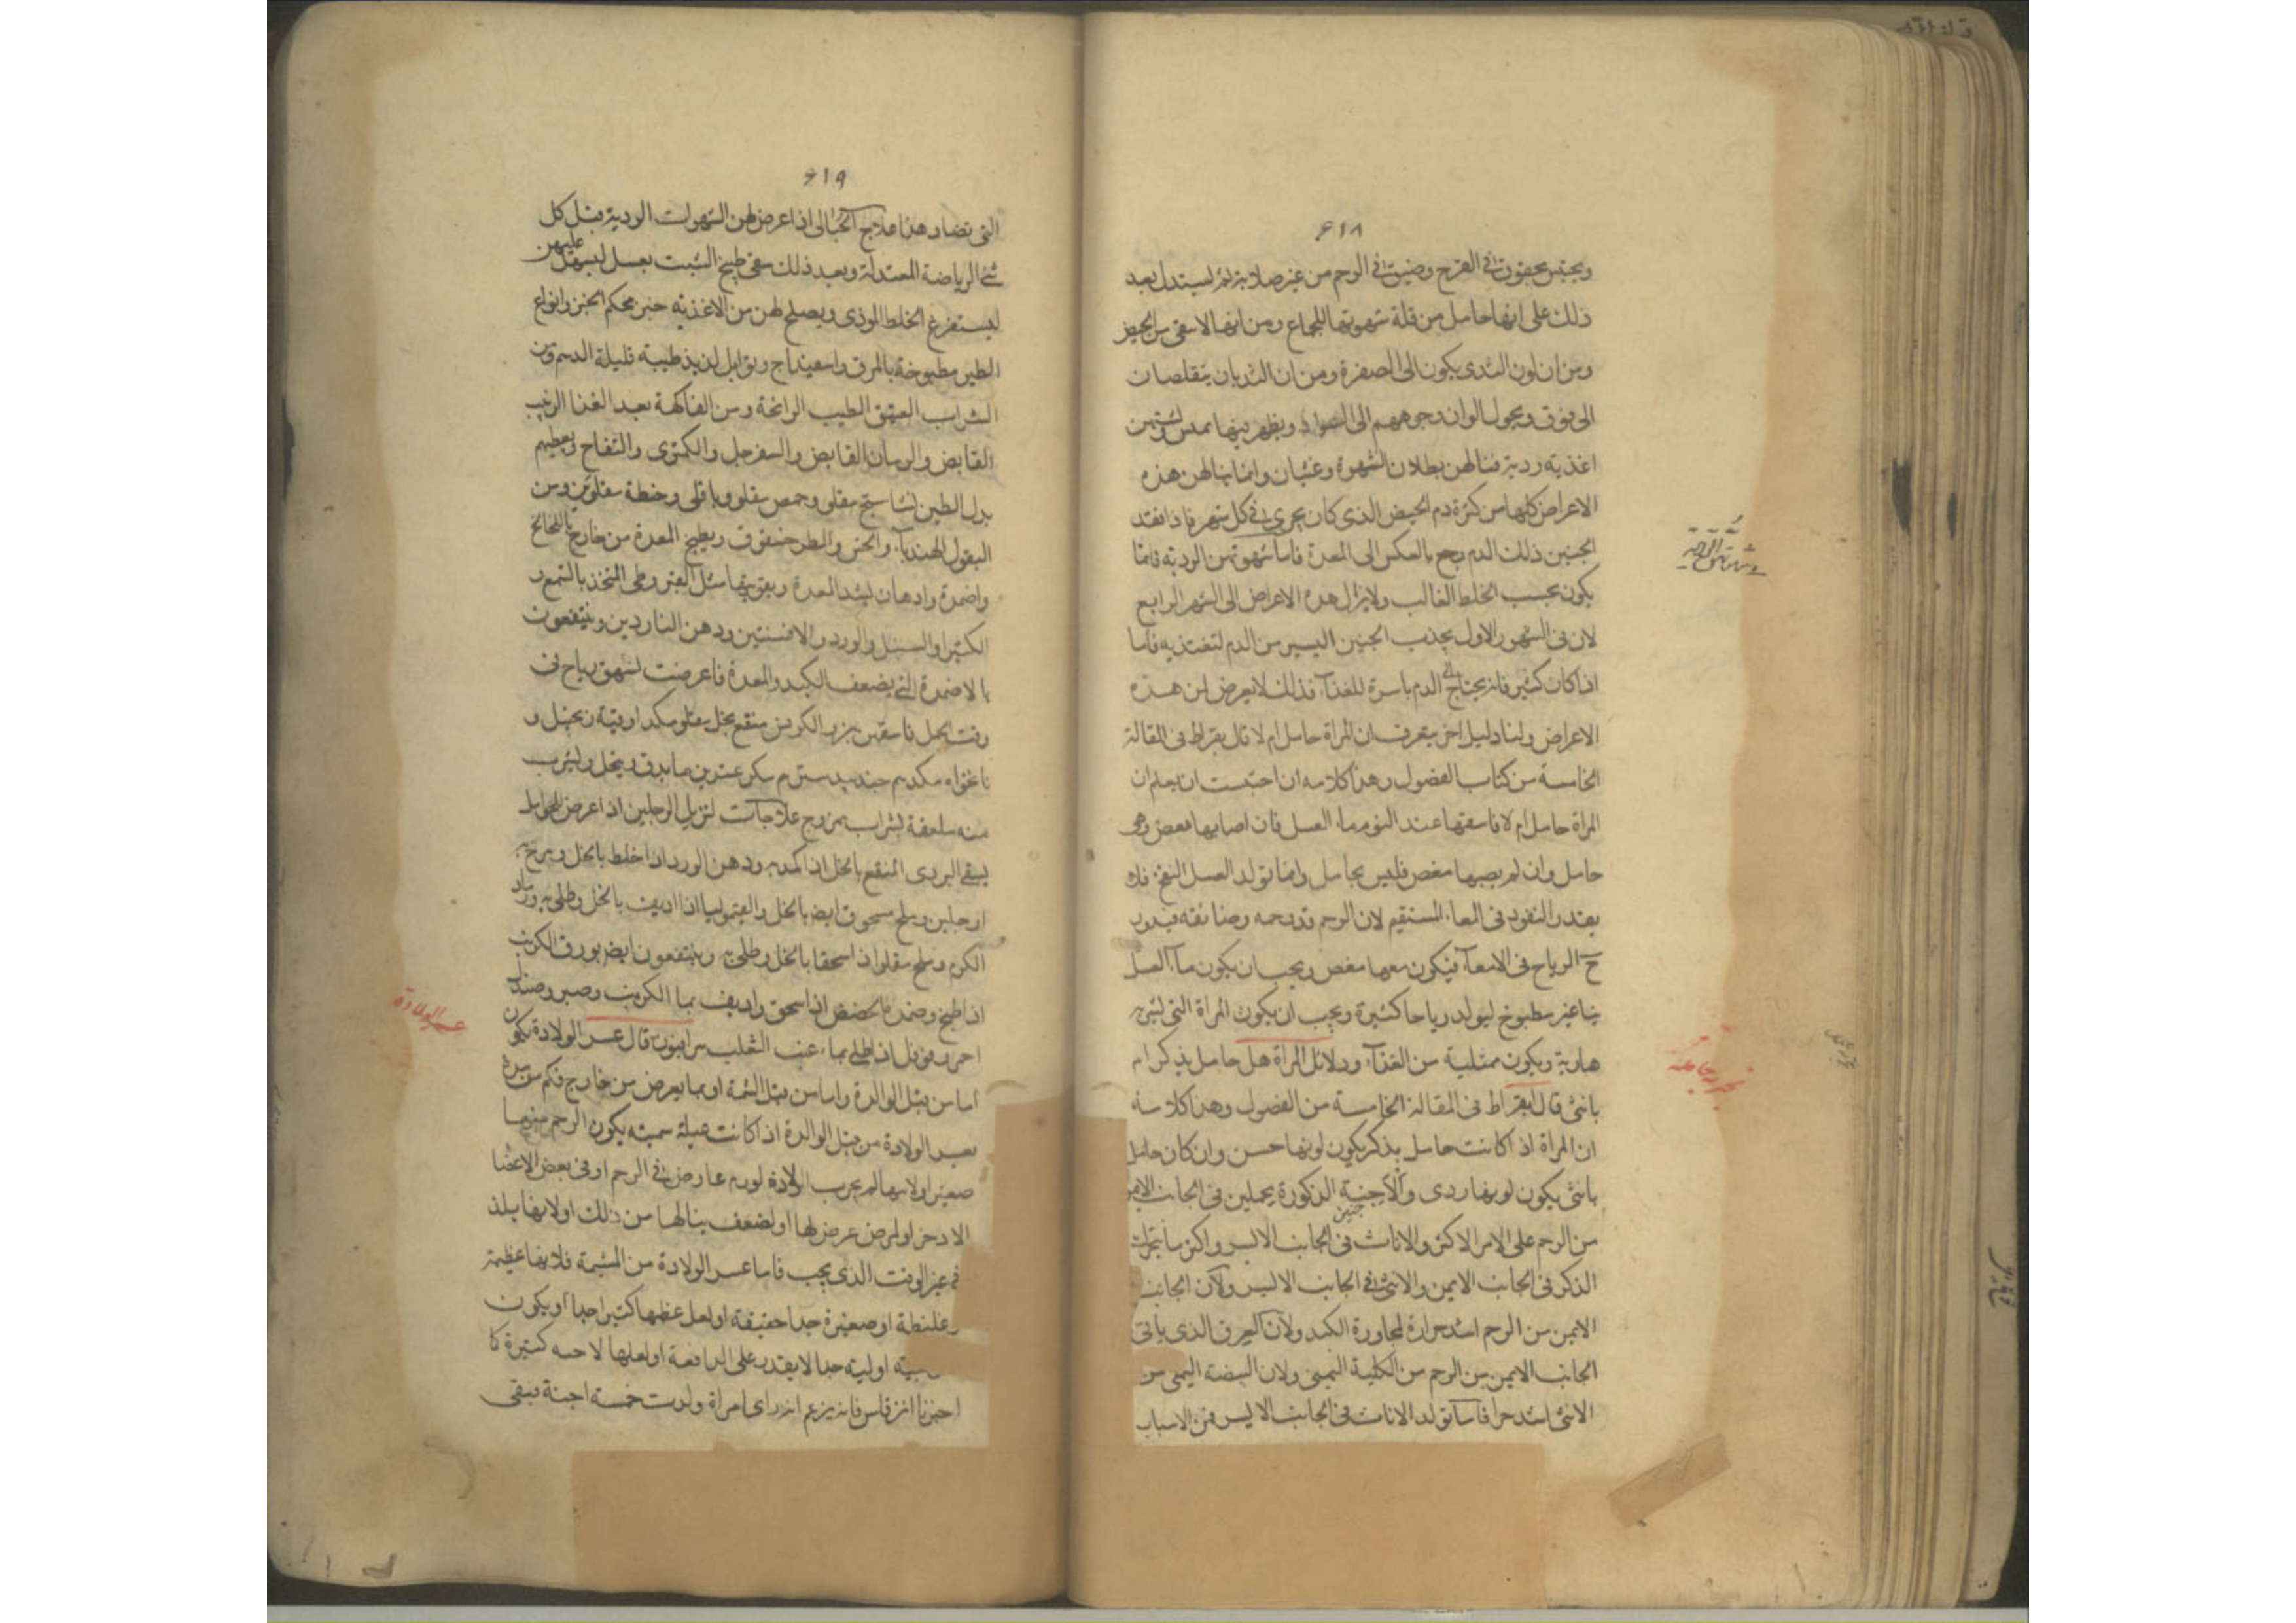 ٦١٨
ذلك على انها حامل من قلة شهوتها للجماع ومن انها لا
ومن ان لون الثدى يكون الى الصفرة ومن ان الثديان يتقلصان
الى فوق ويحول الوان وجوههم الى السواد ويظهر
اغذيه ردية فينالهن بطلان الشهوة وغثيان وانما ينالهن هذه
الاعراض كلها من كثرة دم الحيض الذى كان يجرى فى كل شهر فاذا
الجنين ذلك الدم رجع بالعكس الى المعدة فاما شهوتهن الرديه فانما
يكون بحسب الخلط الغالب ولا يزال هذه الاعراض الى الشهر الرابع
لان فى الشهور الاول يجذب الجنين اليسير من الدم لتغتذيه فاما
اذا كان كثير فانه يحتاج الى الدم باسره للغذآ فذلك لا يعرض لهن هذه
الاعراض ولنا دليل اخر يتعرف ان المراة حامل ام لا قال بقراط فى المقالة
الخامسة من كتاب الفصول وهذا كلامه ان احببت ان تعلم ان
المراة حامل ام لا فاسقها عند النوم ماء العسل فان اصابها مغص فهى
حامل وان لم يصبها مغص فليس بحامل وانما تولد العسل النفخ فلا
يقدر النفوذ فى المعاء المستقيم لان الرحم قد زحمه وضايقه فيدور
ح الرياح فى الامعآ فيكون معها مغص ويجب ان يكون مآ العسل
نيا غير مطبوخ ليولد رياحا كثيرة ويجب ان يكون المراة التى تشربه
هادية ويكون ممتلية من الغذآ ودلائل المراة هل حامل بذكر ام
بانثى قال بقراط فى المقالة الخامسة من الفصول وهذا كلامه
ان المراة اذا كانت حامل بذكر يكون لونها حسن وان كان حامل
بانثى يكون لونها ردى والاجنة الذكورة يحملن فى الجانب الايمن
من الرحم على الامر الاكثر والاناث فى الجانب الايسر واكثر ما يتحرك
جنين
الذكر فى الجانب الايمن والانثى فى الجانب الايسر ولان الجانب
الايمن من الرحم اشد حرارة لمجاورة الكبد ولان العرق الذى ياتى
الجانب الايمن من الرحم من الكلية اليمنى ولان البيضة اليمنى من
الانثى اشد حرا فاما تولد الاناث فى الجانب الايسر فمن الاسباب
٦١٩
التى تضاد هذا علاج الحبالى اذا عرض لهن الشهوات الردية قبل كل
شئ الرياضة المعتدلة وبعد ذلك سقى طبيخ الشبت بعسل ليسهل عليهن
ليستفرغ الخلط الموذى ويصلح لهن من الاغذيه خبز محكم الخبز وانواع
الطير مطبوخة بالمرق واسفيداج وتوابل لذيذ طيبه قليلة الدسم ومن
الشراب العتيق الطيب الرائحة ومن الفاكهة بعد الغذا الزبيب
القابض والرمان القابض والسفرجل والكمثرى والتفاح ويعطيهم
بدل الطين نشاستج مقلى وحمص مقلو وباقلى وحنطة مقلوتين ومن
البقول الهندبآ والخس والطرحشقوق ويطلى المعدة من خارج
واضمدة وادهان ليشد المعدة ويقويها مثل القيروطى المتخذ بالشمع و
الكثيرا والسنبل والورد والافسنتين ودهن الناردين وينتفعون
بالاضمدة التى يضعف الكبد والمعدة فاعرضت لشهوة رياح فى
وقت الحمل فاسقهن بزر الكرفس منقع بخل مقلو مكد اوقية زنجبيل و
نانخواه مكدم جند بيدستر م سكر عشرين ما يدق وينخل ويشرب
منه ملعقة بشراب ممزوج علاجات الرجلين اذا عرض للحوامل
يسقى البردى المنقع بالخل اذا ودهن الورد اذا خلط بالخل
الرجلين وملح مسحوق ايضا بالخل والقيموليا اذا اديف بالخل وطلى به ورماد
الكرم وملح مقلو اذا سحقا بالخل وطلى به وينتفعون ايضا بورق الكرنب
اذا طبخ وضمد به الحضض اذا سحق واديف بما الكرنب وصبر وصندل
احمر وفوفل اذا طلى بماء عنب الثعلب سرابيون قال عسر الولادة يكون
اما من قبل الوالدة واما من قبل المشيمة او بما يعرض من خارج
بعسر الولادة من قبل الوالدة اذا كانت عبلة سمينه يكون الرحم منها
صغير اولانها لم تجرب الولادة لورم عارض فى الرحم او فى بعض الاعضا
الاخر او لمرض عرض لها او لضعف ينالها من ذلك اولانها يلد
فى غير الوقت الذى يجب فاما عسر الولادة من المشيمة فلانها عظيمة
غليظة او صغيرة جدا خفيفة او لعل عظمها كثير جدا او يكون
او ليه جدا لا يقدر على الدافعة او لعلها لاجنه كثيرة كما
اخبرنا فانه يزعم انه راى امراة ولدت خمسة اجنة يبقى
عسر الولادة